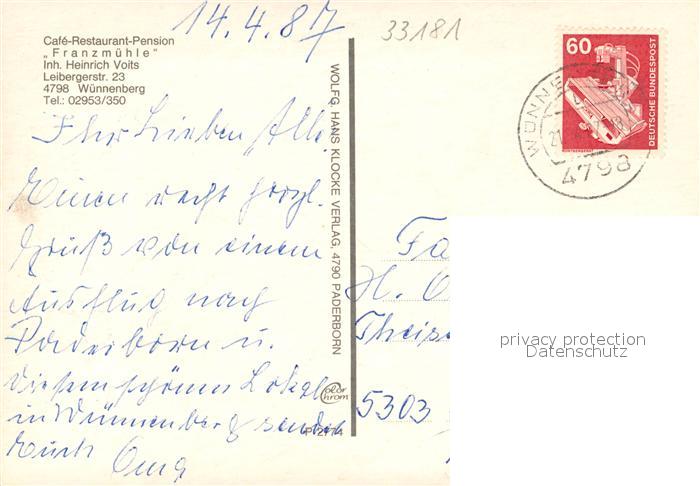 14.4.87
33181
Café-Restaurant-Pension
„Franzmühle"
Inh. Heinrich Voits
Leibergerstr. 23
4798 Wünnenberg
Tel.: 02953/350
Ihr Lieben Alle,
Einen recht herzl.
Gruß von einem
Ausflug nach
Paderborn u.
diesem schönen Lokal
in Wünnenberg sendet
Euch Oma
WOLFG. HANS KLOCKE VERLAG, 4790 PADERBORN
Color Chrom
60
DEUTSCHE BUNDESPOST
RÖNTGENGERÄT
WÜNNE
4798
Fa
H.
Theis
5303
privacy protection
Datenschutz